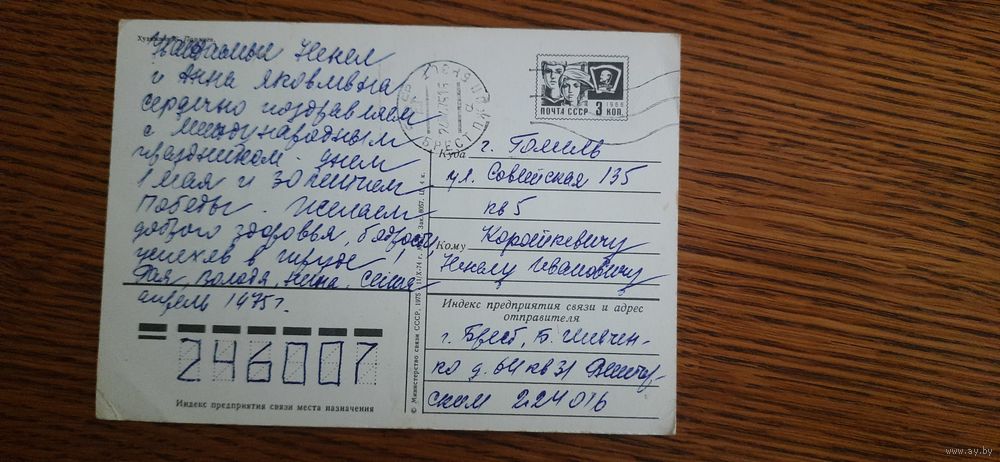 Уважаемые Ненел
и Анна Яковлевна
сердечно поздравляем
с Международным
праздником днем
1 мая и 30 летием
Победы. Желаем
доброго здоровья, бодрости,
успехов в труде!
Фая, Володя, Нина, Саша
апрель 1975 г.
246007
Индекс предприятия связи места назначения
© Министерство связи СССР, 1975
БРЕСТ
ПОЧТА СССР 3 КОП.
1966
Куда г. Гомель
ул. Советская 135
кв 5
Кому Короткевичу
Ненелу Ивановичу
Индекс предприятия связи и адрес
отправителя
г. Брест, Б. Шевчен-
ко д. 6/1 кв 31
ским 224016
www.ay.by